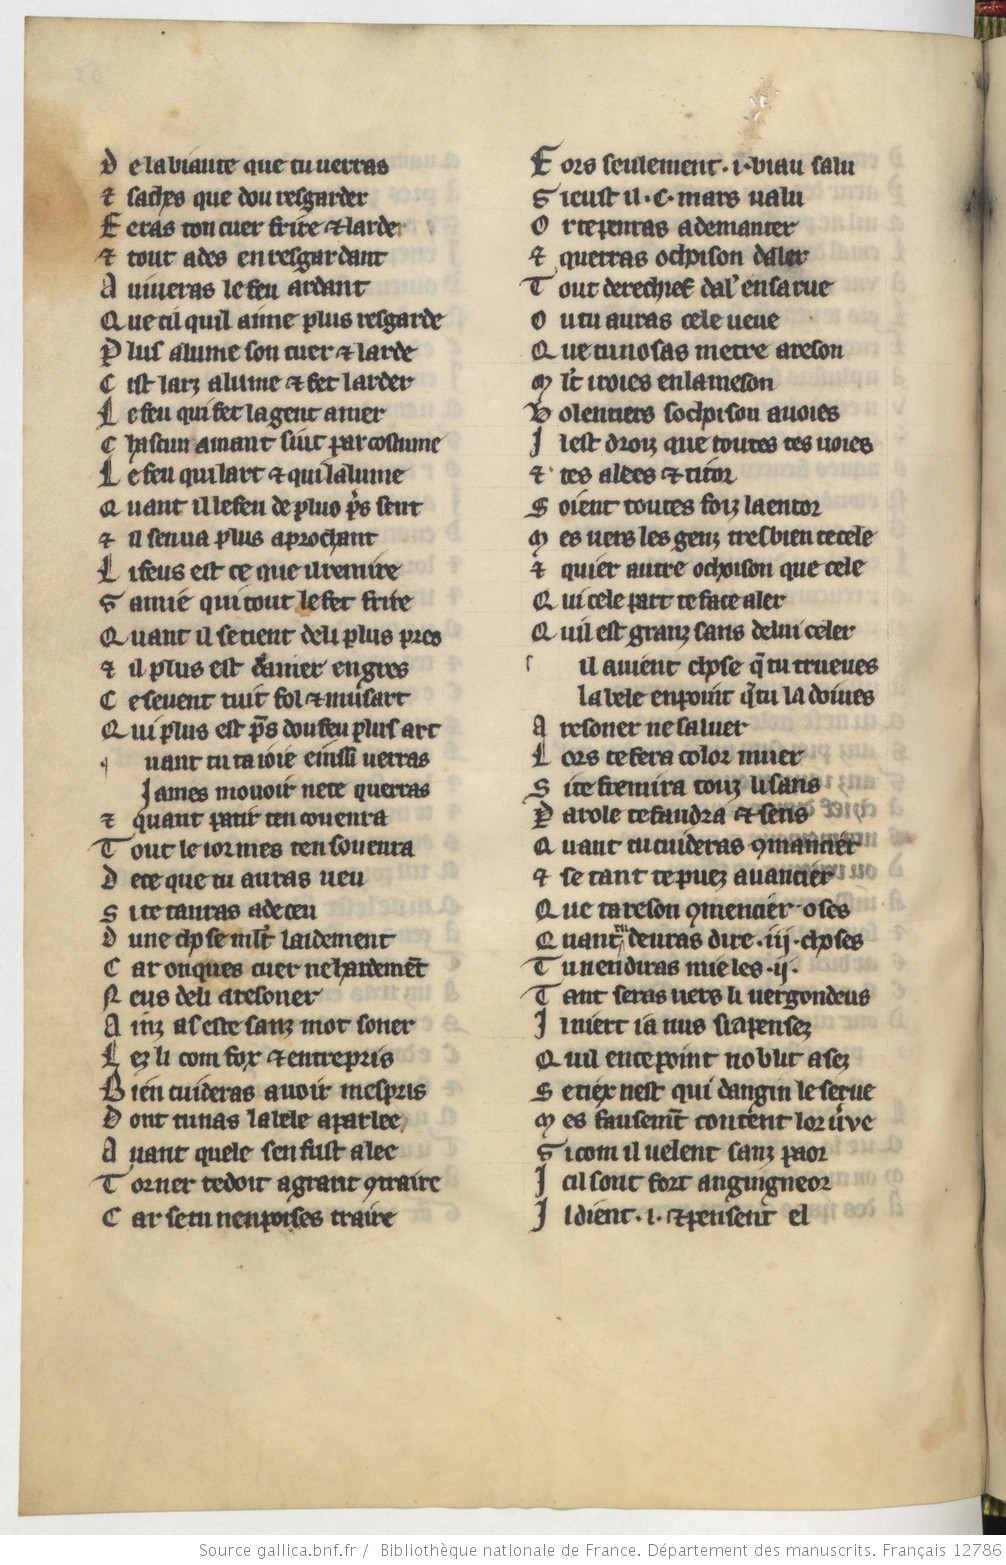 De la biaute que tu verras
⁊ saches que dou resgarder
Feras ton cuer frire ⁊ larder
⁊ tout ades en resgardant
Aviveras le feu ardant
Que cil quil aime plus resgarde
Plus alume son cuer ⁊ larde
Cist larz alume ⁊ fet larder
Le feu qui fet la gent amer
Chascun amant suit par costume
Le feu qui lart ⁊ qui lalume
Quant il le feu de plus p̃s sent
⁊ il sen va plus aprochant
Li feus est ce que il remire
Samie qui tout le fet frire
Quant il se tient de li plus pres
⁊ il plus est damer engres
Ce sevent tuit fol ⁊ musart
Qui plus est p̃s dou feu plus art
uant tu ta ioie einssi verras
James movoir ne te querras
⁊ quant partir ten couenra
Tout le ior mes ten souenra
De ce que tu auras veu
Si te tauras a deceu
Dune chose ml̃t laidement
Car onques cuer ne hardem̃t
Neus de li aresoner
Ainz as este sanz mot soner
Lez li com fox ⁊ entrepris
Bien cuideras avoir mespris
Dont tu nas la bele aparlee
Avant quele sen fust alee
Torner te doit a grant ꝯtraire
Car se tu nen poises traire
Fors seulement .i. biau salu
Si eust il .c. mars valu
Or te penras a demanter
⁊ querras ochoison daler
Tout derechief dal' en sa rue
Ou tu auras cele veue
Que tu nosas metre a reson
Ml̃t iroies en la meson
Volentiers sochoison avoies
Il est droiz que toutes tes voies
⁊ tes alees ⁊ ti tor
Soient toutes foiz la entor
Mes vers les genz tres bien te cele
⁊ quier autre ochoison que cele
Qui cele part te face aler
Quil est granz sans de lui celer
il avient chose q̃ tu trueves
la bele en point q̃ tu la doives
Aresoner ne saluer
Lors te fera color muer
Si te fremira touz li sans
Parole te faudra ⁊ sens
Quant tu cuideras ꝯmancier
⁊ se tant te puez avancier
Que ta reson ꝯmencier oses
Quant tu deuras dire .iij. choses
Tu nen diras mie les .ij.
Tant seras vers li vergondeus
Il niert ia nus si apensez
Quil en ce point noblit asez
Se tiex nest qui dangin le serve
Mes fausem̃t content lor v̾ve
Si com il velent sanz paor
Il cil sont fort angingneor
Il dient .i. ⁊ pensent el
Source gallica.bnf.fr / Bibliothèque nationale de France. Département des manuscrits. Français 12786